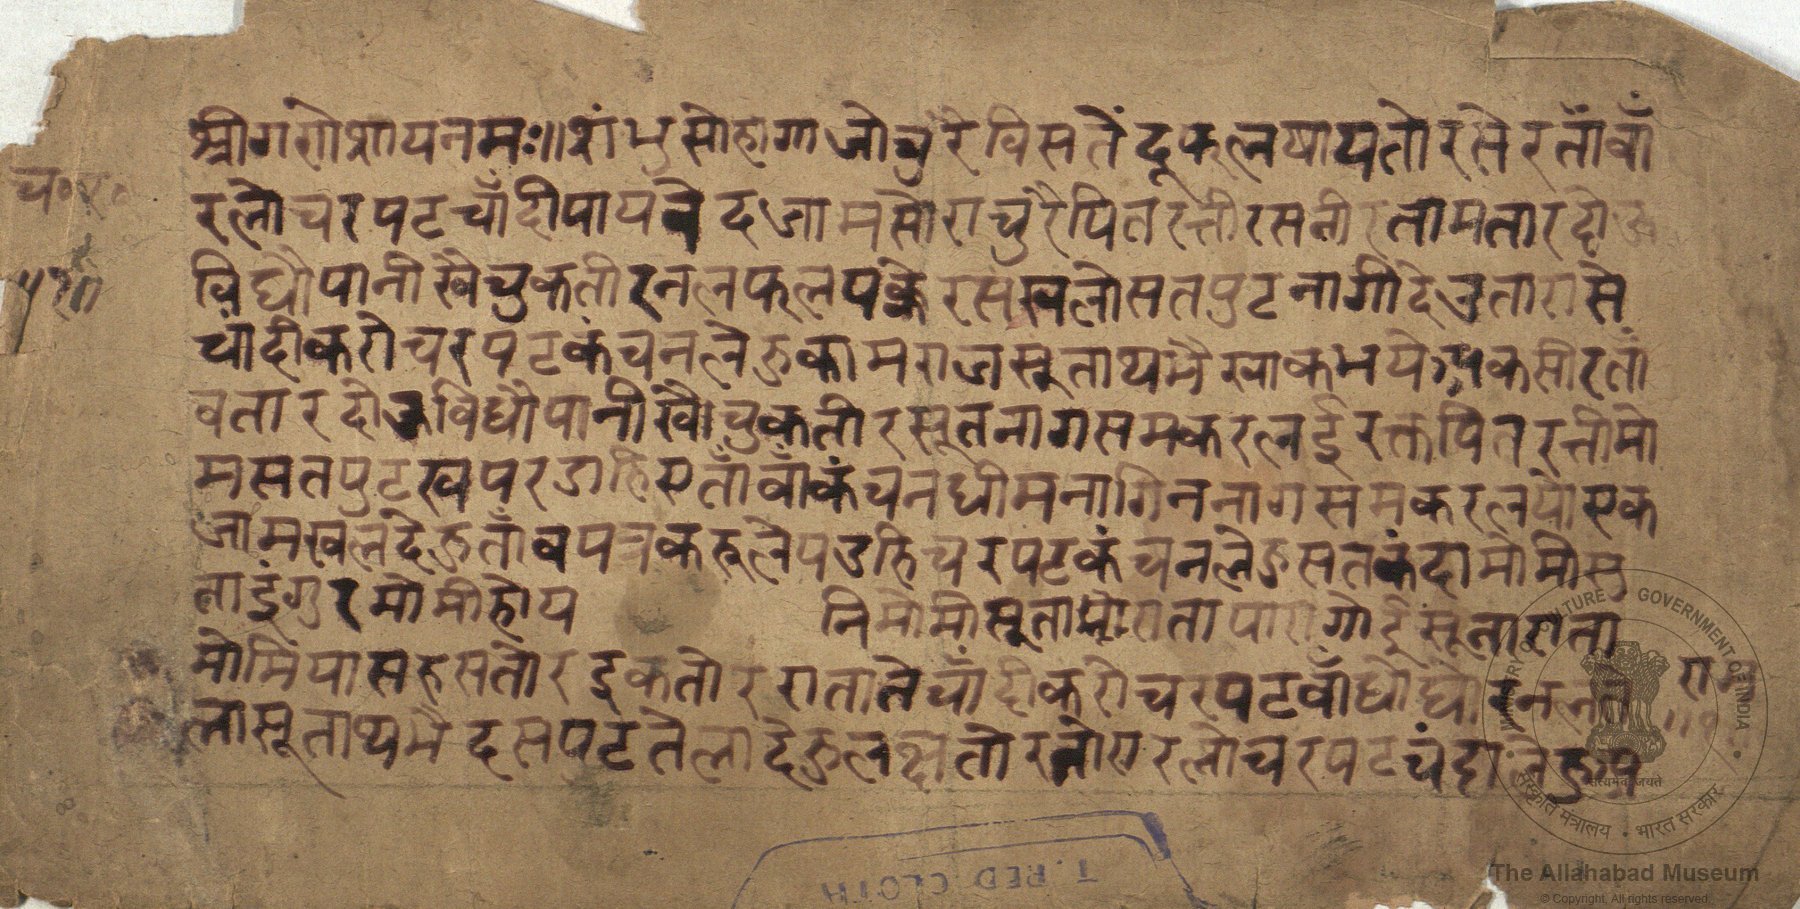 श्रीगणेशायनमः॥शंभुसोहागाजोचुरैविसतेंदूकूलषायतोरसेरताँवाँ
रलोचरपटचाँदीपायनेदजामसोराचुरैपितरत्तीरसतीरतामतारदोऊ
विधौपानीखैचुकतीरनलफूलपक्केरसखलोसतपुटनागीदेउतारासे
चांदीकरोचरपटकंचनलेऊकामराजसूताथमैखाकभये कसीरताँ
वतारदोऊविधौपानीखौचुकतीरसूतनागसमकरलईरक्तपितरत्तीमो
मसतपुटखपरडाहिएताँवाँकंचनधीमनागिननागसमकरलपोएक
जामखलदेऊताँवपत्रकहूलैपउहिचरपटकंचनलेऊसतकंदामोमीसु
ताइंगुरमोमीहोय निमोमीसूता तापारोगोदूँसूताराता
मोमिपासहसतोरइकतोररातातेचाँदीकरोचरपटवाँधोधोरनलते
लासूताथमैदसपटतेलादेऊलक्षतोरतोएरलोचरपटचंदा
च॰
राम
T. RED CLOTH
MINISTRY OF CULTURE GOVERNMENT OF INDIA
सत्यमेव जयते
संस्कृति मंत्रालय • भारत सरकार
The Allahabad Museum
© Copyright, All rights reserved.